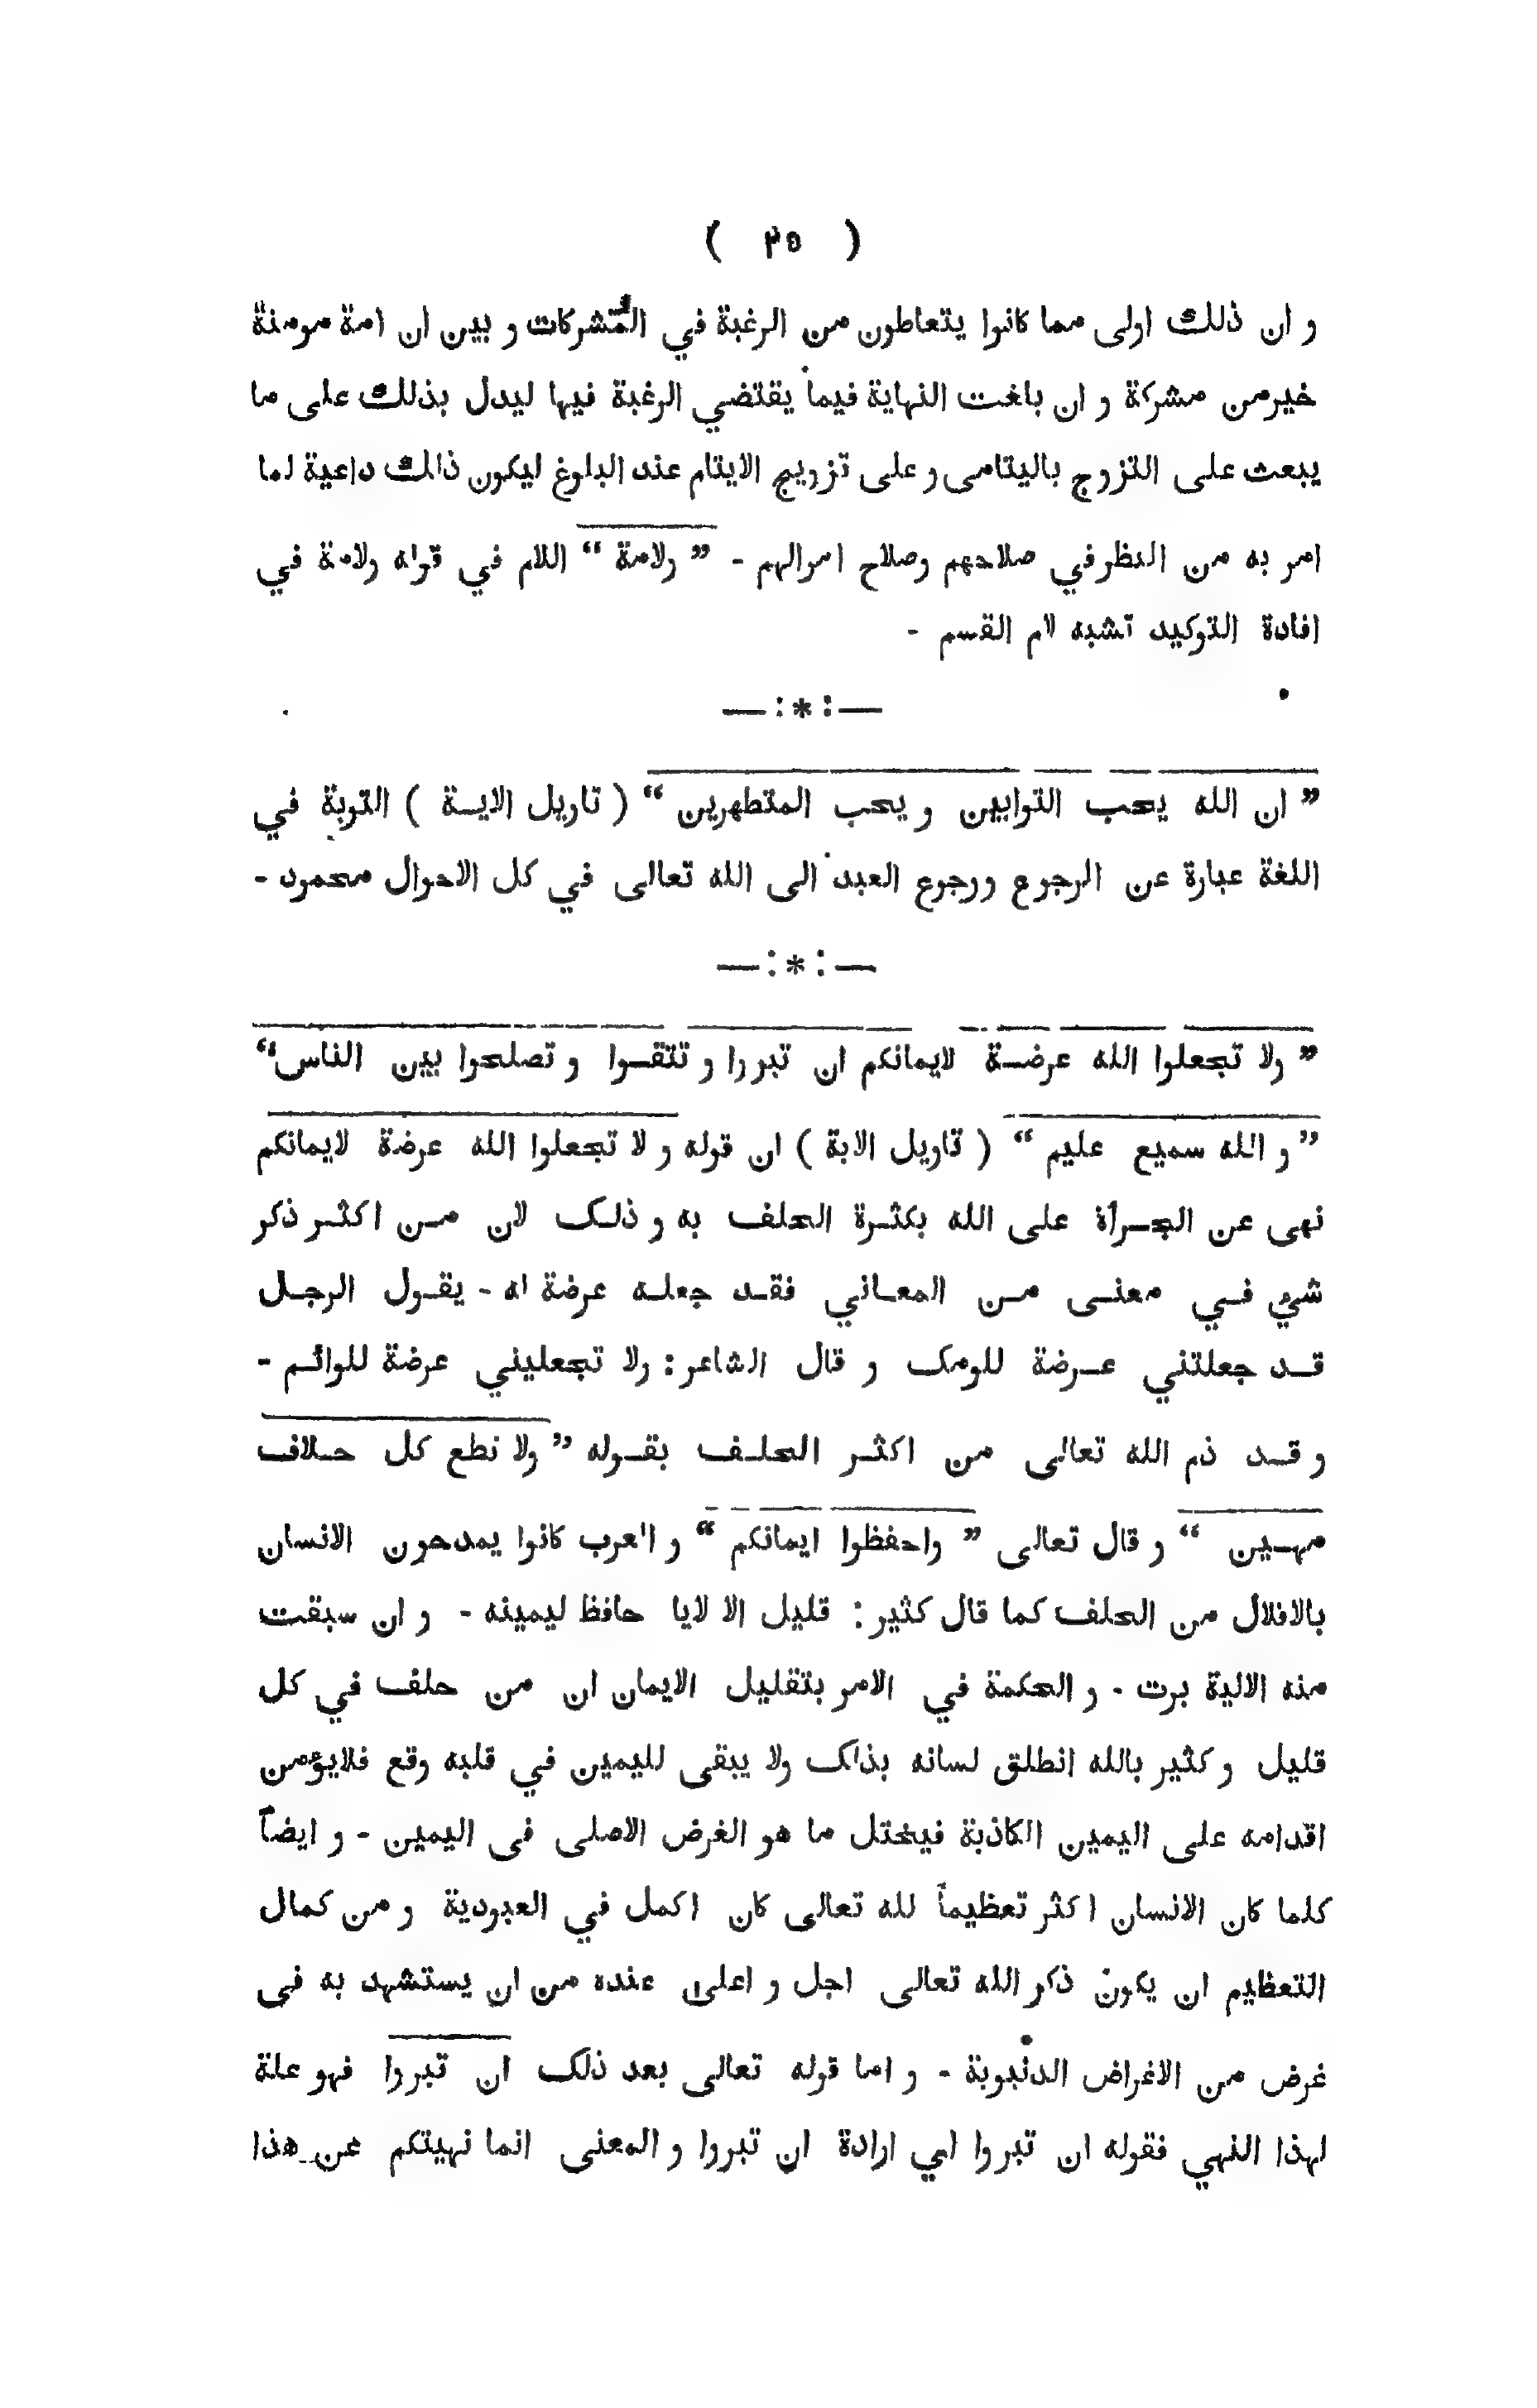 ( ٢٥ )
و ان ذلك اولى مما كانوا يتعاطون من الرغبة في المتشركات و بين ان امة مومنة
خيرمن مشركة و ان باغت النهاية فيما يقتضي الرغبة فيها ليدل بذلك على ما
يبعث على التزوج باليتامى و على تزويج الايتام عند البلوغ ليكون ذالك داعية لما
امر به من النظر في صلاحهم وصلاح اموالهم - ” ولامة “ اللام في قوله ولامة في
افادة التوكيد تشبه لام القسم -
—:*:—
” ان الله يحب التوابين و يحب المتطهرين “ ( تاويل الايــة ) التوبة في
اللغة عبارة عن الرجوع ورجوع العبد الى الله تعالى في كل الاحوال محمود -
—:*:—
” ولا تجعلوا الله عرضــة لايمانكم ان تبروا و تتقــوا و تصلحوا بين الناس“
” و الله سميع عليم “ ( تاويل الاية ) ان قوله و لا تجعلوا الله عرضة لايمانكم
نهى عن الجــرأة على الله بكثــرة الحلف به و ذلـك لان مــن اكثــر ذكر
شيء فــي معنــى مــن المعــاني فقــد جعلــه عرضة له - يقــول الرجــل
قــد جعلتني عــرضة للومك و قال الشاعر : ولا تجعليني عرضة للوائــم -
و قــد ذم الله تعالى من اكثــر الحلــف بقــوله ” ولا تطع كل حــلاف
مهــين “ و قال تعالى ” واحفظوا ايمانكم “ و العرب كانوا يمدحون الانسان
بالاقلال من الحلف كما قال كثير : قليل الا لايا حافظ ليمينه - و ان سبقت
منه الالية برت - و الحكمة في الامر بتقليل الايمان ان من حلف في كل
قليل و كثير بالله انطلق لسانه بذلك ولا يبقى لليمين في قلبه وقع فلايؤمن
اقدامه على اليمين الكاذبة فيختل ما هو الغرض الاصلى فى اليمين - و ايضاً
كلما كان الانسان اكثر تعظيماً لله تعالى كان اكمل في العبودية و من كمال
التعظيم ان يكون ذكر الله تعالى اجل و اعلى عنده من ان يستشهد به فى
غرض من الاغراض الدنيوية - و اما قوله تعالى بعد ذلك ان تبروا فهو علة
لهذا النهي فقوله ان تبروا اي ارادة ان تبروا و المعنى انما نهيتكم عن هذا